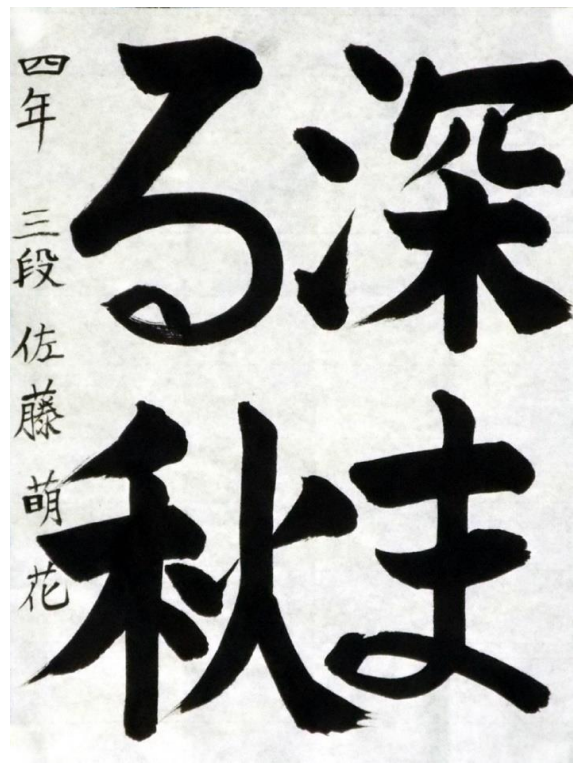 深ま
る秋
四年 三段 佐藤萌花